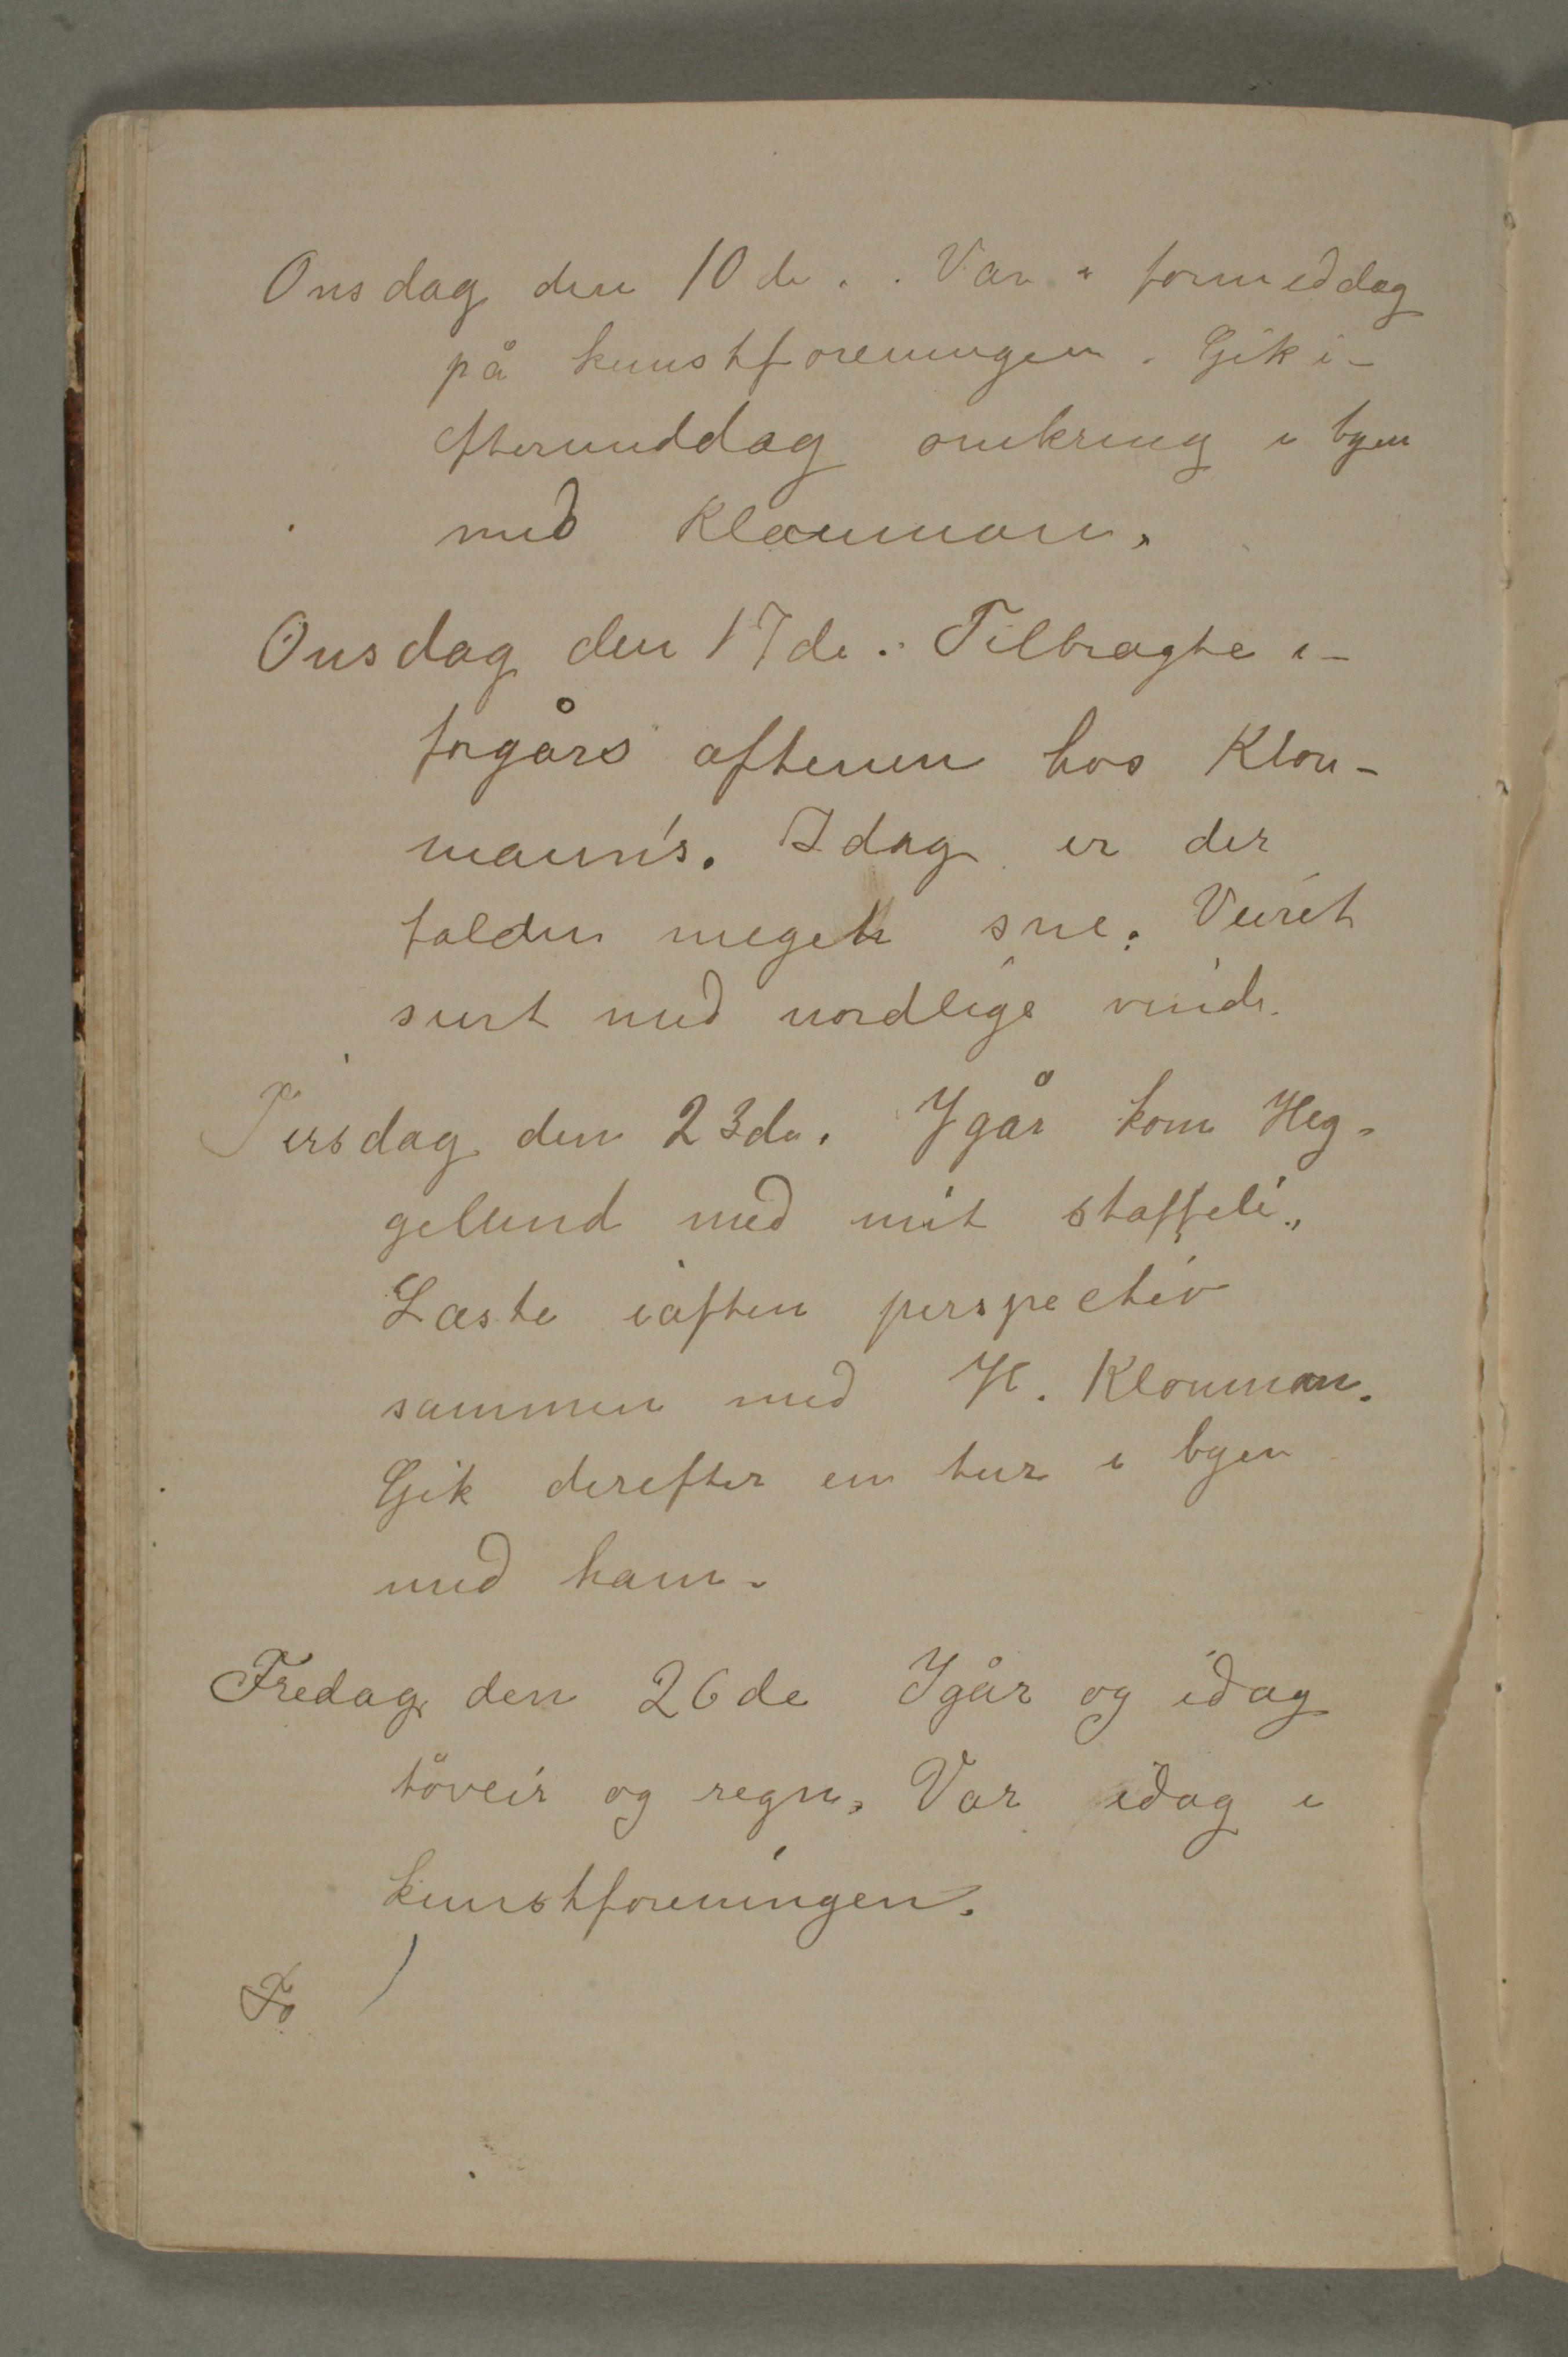 Onsdag den 10de. . Var i formiddag
på kunstforeningen. Gik i-
eftermiddag omkring i byen
med Klouman.
Onsdag den 17de. Tilbragte i-
forgårs aftenen hos Klou-
mann's. Idag er der
falden megen sne. Veiret
surt med nordlige vinde.
Tirsdag den 23de. Igår kom Heg-
gelund med mit staffeli.
Læste iaften perspectiv
sammen med H. Klouman.
Gik derefter en tur i byen
med ham.
Fredag den 26de Igår og idag
töveir og regn. Var idag i
kunstforeningen.
Fo